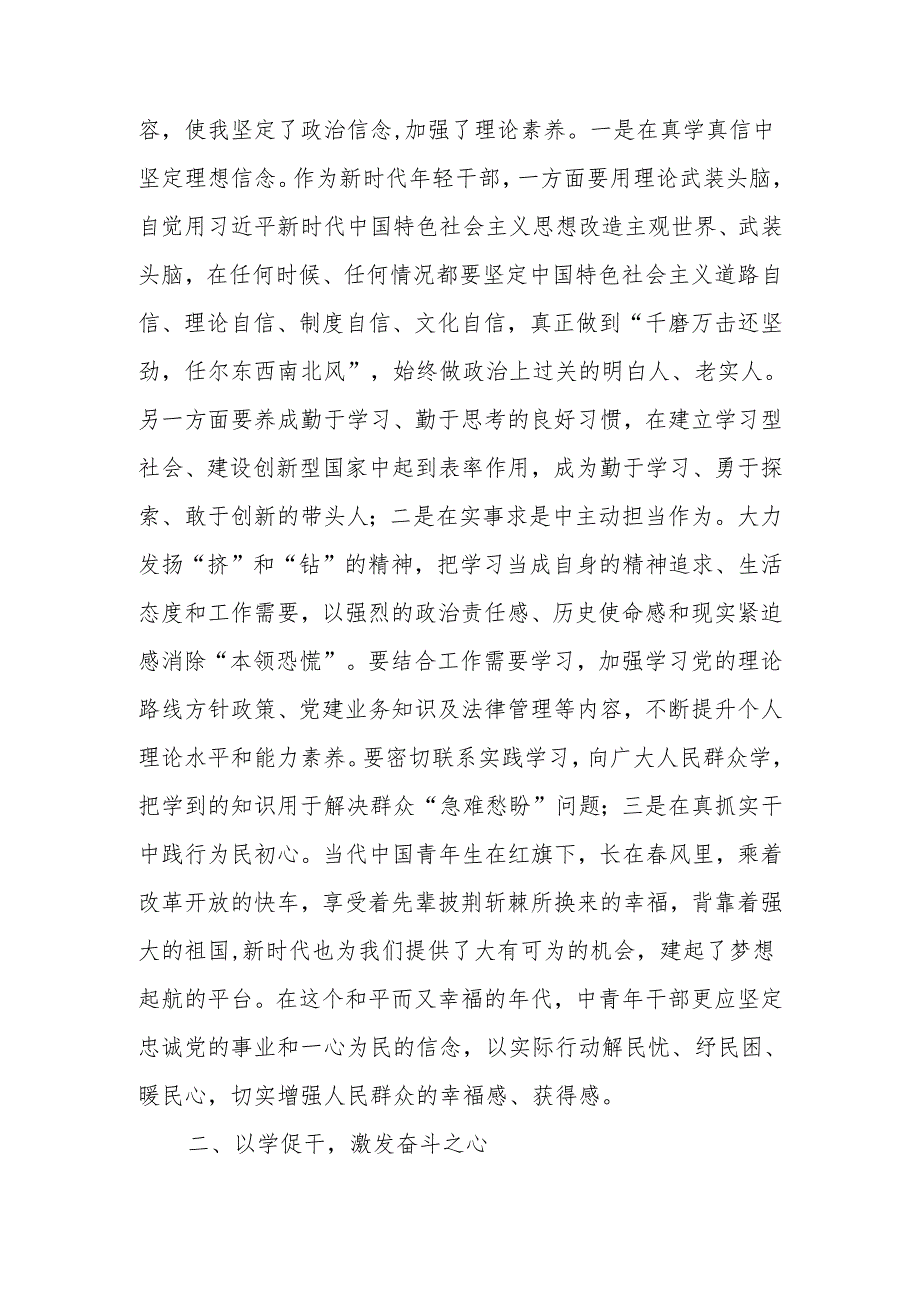 容，使我坚定了政治信念,加强了理论素养。一是在真学真信中
坚定理想信念。作为新时代年轻干部，一方面要用理论武装头脑，
自觉用习近平新时代中国特色社会主义思想改造主观世界、武装
头脑，在任何时候、任何情况都要坚定中国特色社会主义道路自
信、理论自信、制度自信、文化自信，真正做到“千磨万击还坚
劲，任尔东西南北风”，始终做政治上过关的明白人、老实人。
另一方面要养成勤于学习、勤于思考的良好习惯，在建立学习型
社会、建设创新型国家中起到表率作用，成为勤于学习、勇于探
索、敢于创新的带头人；二是在实事求是中主动担当作为。大力
发扬“挤”和“钻”的精神，把学习当成自身的精神追求、生活
态度和工作需要，以强烈的政治责任感、历史使命感和现实紧迫
感消除“本领恐慌”。要结合工作需要学习，加强学习党的理论
路线方针政策、党建业务知识及法律管理等内容，不断提升个人
理论水平和能力素养。要密切联系实践学习，向广大人民群众学，
把学到的知识用于解决群众“急难愁盼”问题；三是在真抓实干
中践行为民初心。当代中国青年生在红旗下，长在春风里，乘着
改革开放的快车，享受着先辈披荆斩棘所换来的幸福，背靠着强
大的祖国,新时代也为我们提供了大有可为的机会，建起了梦想
起航的平台。在这个和平而又幸福的年代，中青年干部更应坚定
忠诚党的事业和一心为民的信念，以实际行动解民忧、纾民困、
暖民心，切实增强人民群众的幸福感、获得感。
二、以学促干，激发奋斗之心